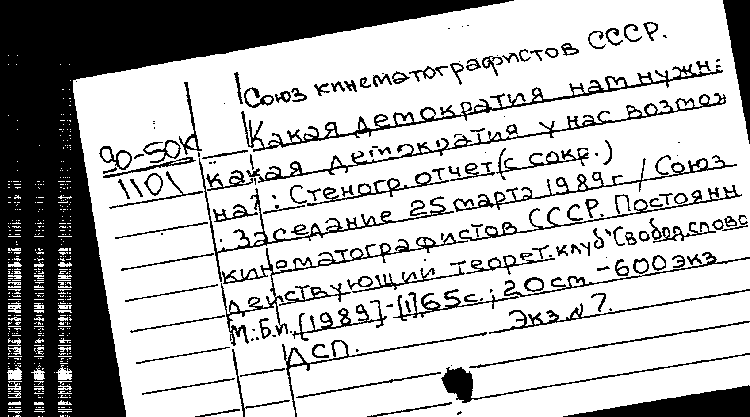 Союз кинематографистов СССР.
Какая демократия нам нужн
90-50К
1101
какая демократия у нас возмож
на? : Стеногр. отчет (с сокр.)
: Заседание 25 марта 1989 г / Союз
кинематографистов СССР. Постоянн
действующий теорет. клуб "Свобод. слово
М.: Б.и., [1989]-[1], 65 с. ; 20 cm. - 600 экз
Экз. № 7.
ДСП.